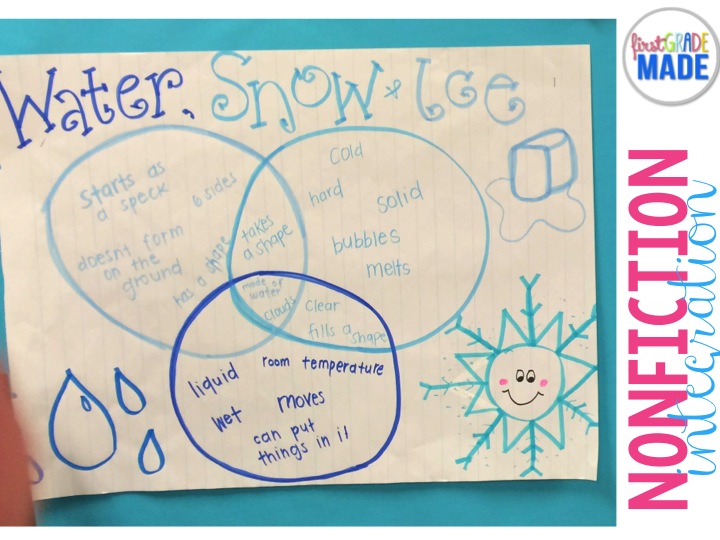 Water, Snow & Ice
Starts as
a speck
6 sides
doesnt form
on the
ground
has a shape
takes
a shape
cold
hard
solid
bubbles
melts
made of
water
clouds
clear
fills a shape
liquid
room temperature
wet
moves
can put
things in it
firstGRADE
MADE
NONFICTION
integration